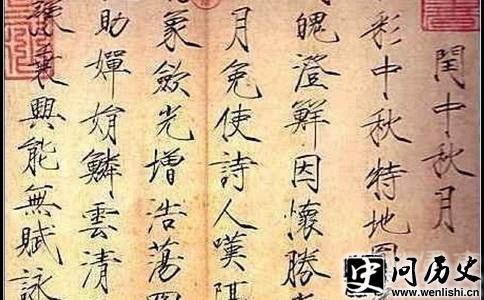 閏中秋月
彩中秋特地圓
魄澄鮮因懷勝
月免使詩人嘆隔
象斂光增浩蕩
助嬋娟鱗雲清
豫乘興能無賦詠
史 问历史
www.wenlishi.cn